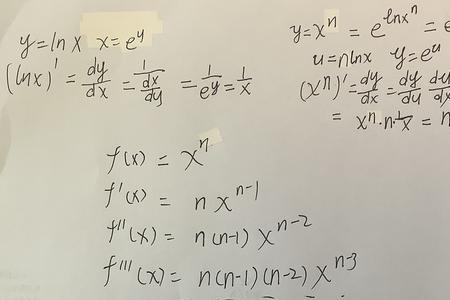 y = ln x   x = e^y
(ln x)' = dy/dx = 1/(dx/dy) = 1/e^y = 1/x
y = x^n = e^{ln x^n} =
u = n ln x   y = e^u
(x^n)' = dy/dx = dy/du du/dx
= x^n · n · 1/x = n
f(x) = x^n
f'(x) = n x^{n-1}
f''(x) = n(n-1) x^{n-2}
f'''(x) = n(n-1)(n-2) x^{n-3}